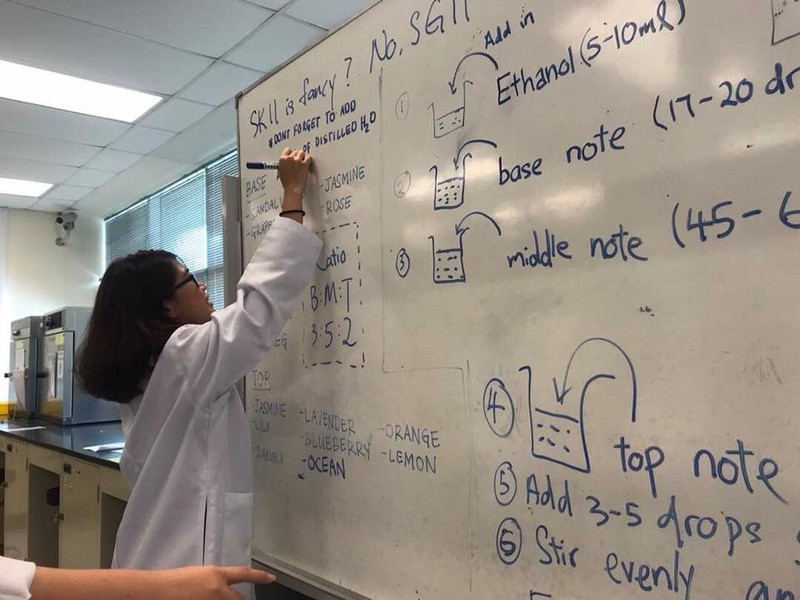 SK11 is fancy? No, SG11
*DONT FORGET TO ADD
OF DISTILLED H₂O
BASE
-JASMINE
-ROSE
Ratio
B:M:T
3:5:2
TOP
-JASMINE
-LILY
-LAVENDER
-BLUEBERRY
-OCEAN
-ORANGE
-LEMON
① Add in
Ethanol (5-10ml)
② base note (17-20
③ middle note (45-
④ top note
⑤ Add 3-5 drops
⑥ Stir evenly